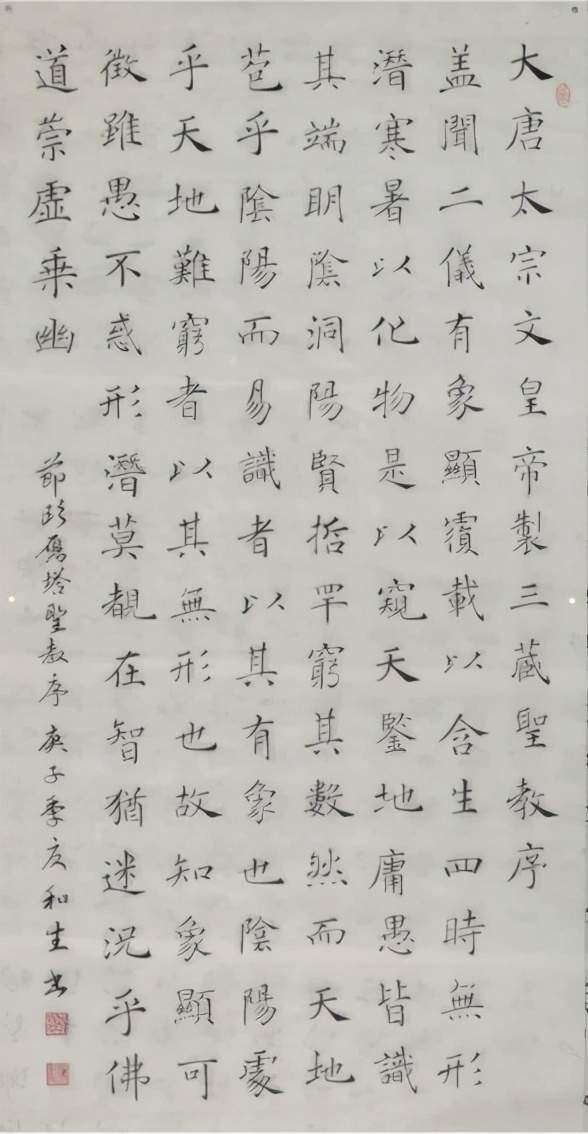 大唐太宗文皇帝製三藏聖教序
盖聞二儀有象顯覆載以含生四時無形
潛寒暑以化物是以窺天鑒地庸愚皆識
其端明陰洞陽賢哲罕窮其數然而天地
苞乎陰陽而易識者以其有象也陰陽處
乎天地難窮者以其無形也故知象顯可
徵雖愚不惑形潛莫覩在智猶迷況乎佛
道崇虛乘幽
節臨雁塔聖教序庚子季夏和生書